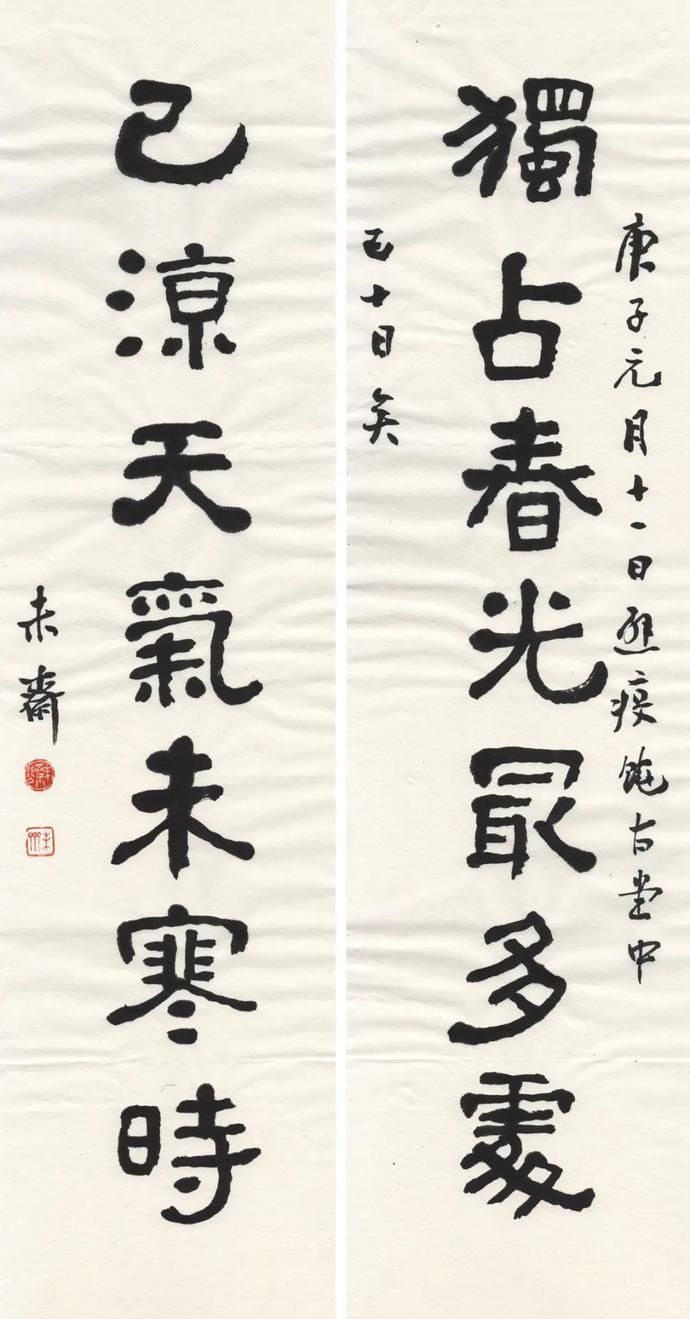 庚子元月十一日避疫堂中
獨占春光最多處
已十日矣
已涼天氣未寒時
未齋